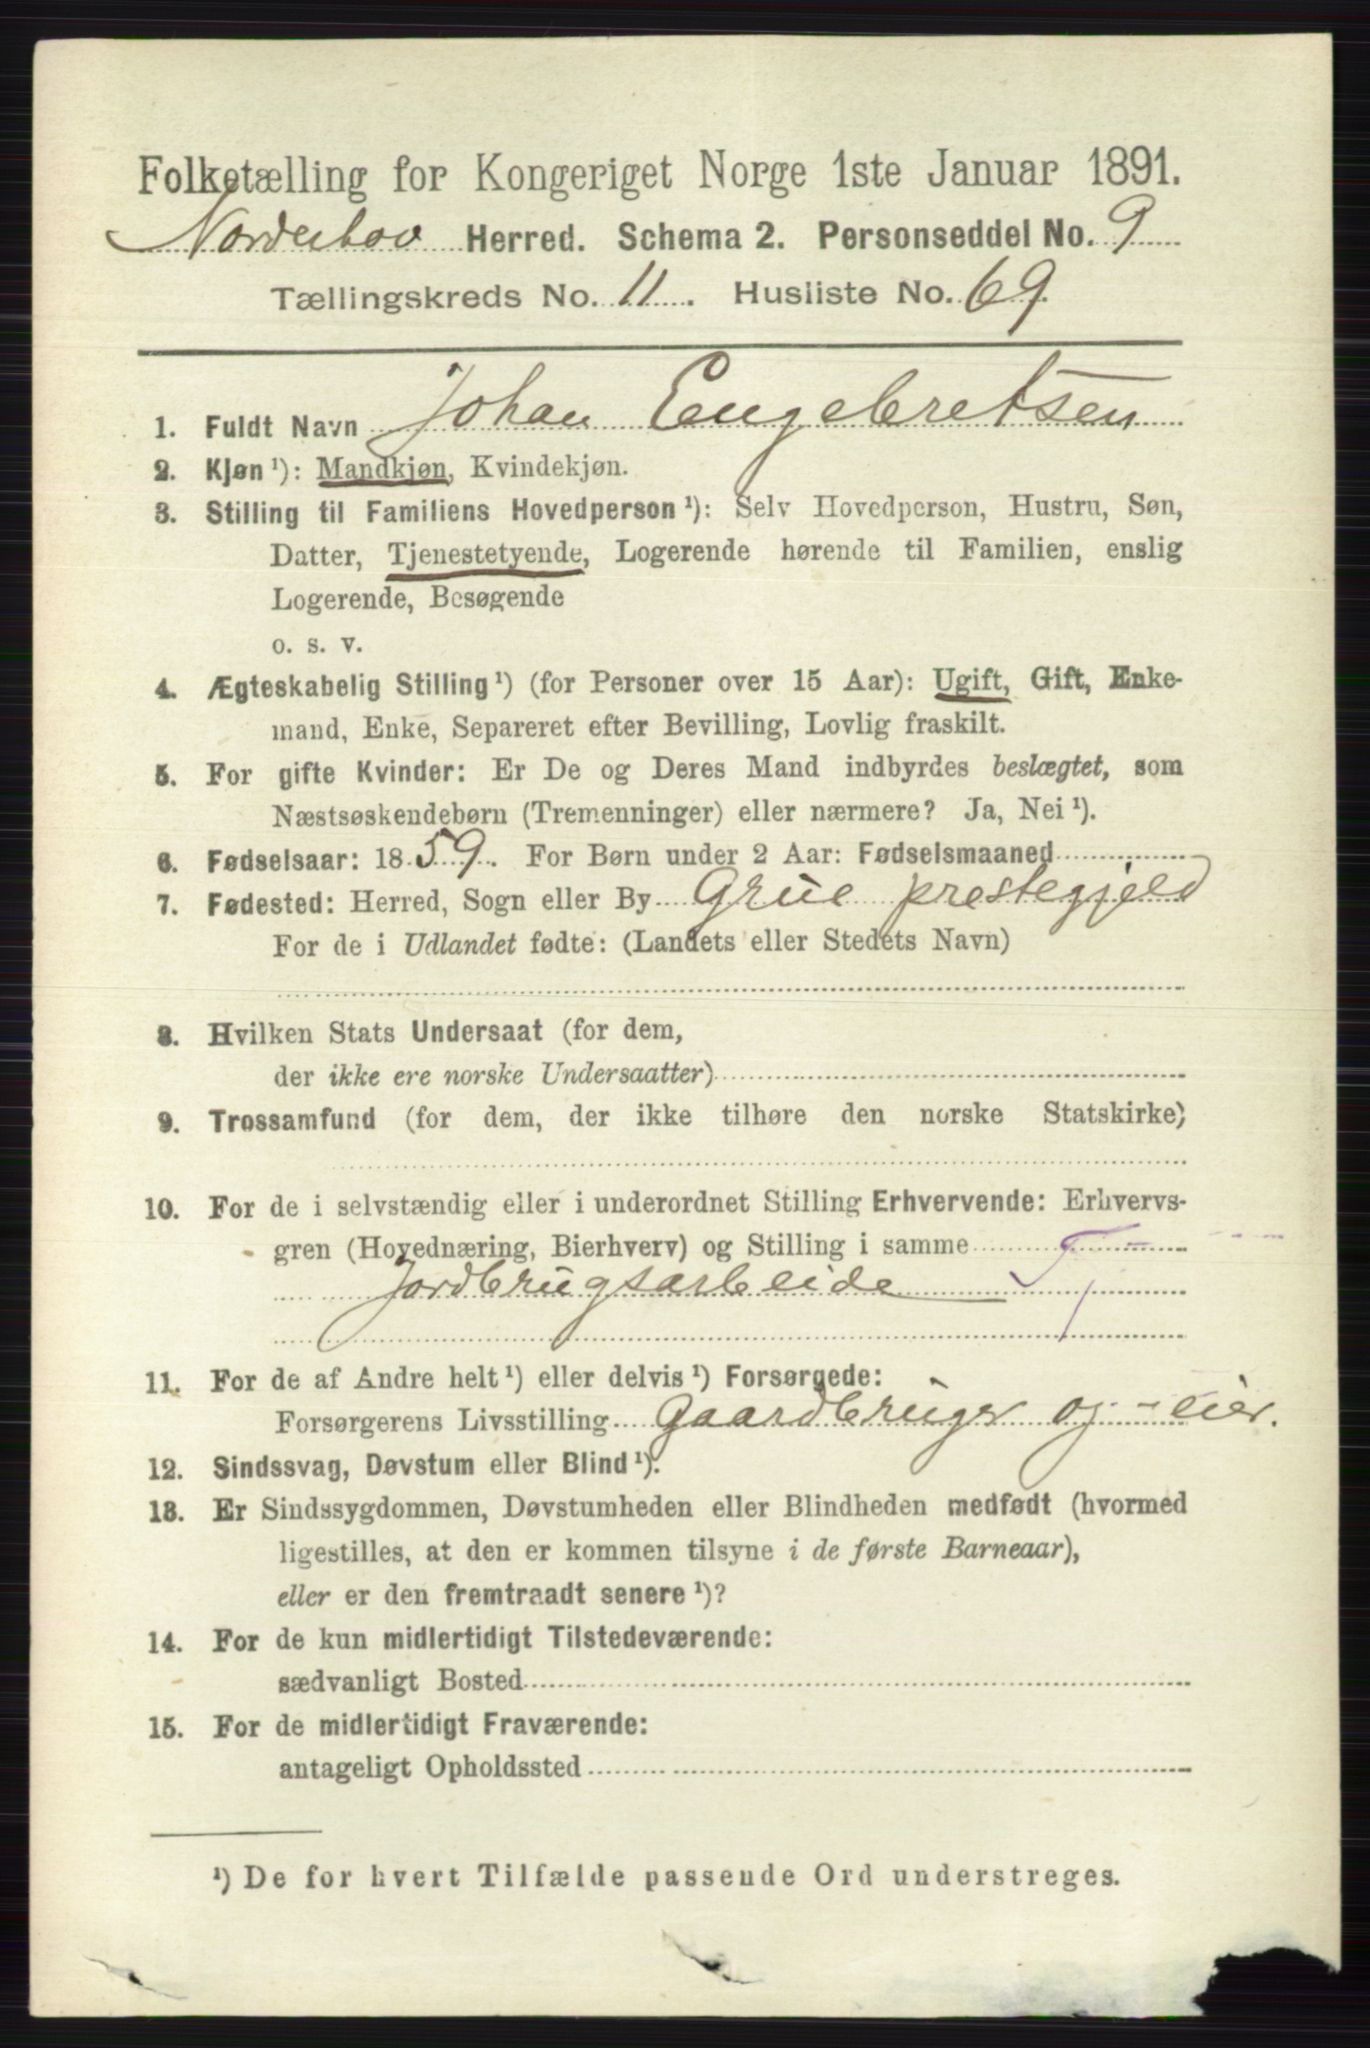 Folketælling for Kongeriget Norge 1ste Januar 1891.
Norderhov Herred. Schema 2. Personseddel No. 9
Tællingskreds No. 11. Husliste No. 69.
1. Fuldt Navn Johan Engebretsen
2. Kjøn ¹): Mandkjøn, Kvindekjøn.
3. Stilling til Familiens Hovedperson ¹): Selv Hovedperson, Hustru, Søn,
Datter, Tjenestetyende, Logerende hørende til Familien, enslig
Logerende, Besøgende
o. s. v.
4. Ægteskabelig Stilling ¹) (for Personer over 15 Aar): Ugift, Gift, Enke-
mand, Enke, Separeret efter Bevilling, Lovlig fraskilt.
5. For gifte Kvinder: Er De og Deres Mand indbyrdes beslægtet, som
Næstsøskendebørn (Tremenninger) eller nærmere? Ja, Nei ¹).
6. Fødselsaar: 1859. For Børn under 2 Aar: Fødselsmaaned
7. Fødested: Herred, Sogn eller By Grue prestegjeld
For de i Udlandet fødte: (Landets eller Stedets Navn)
8. Hvilken Stats Undersaat (for dem,
der ikke ere norske Undersaatter)
9. Trossamfund (for dem, der ikke tilhøre den norske Statskirke)
10. For de i selvstændig eller i underordnet Stilling Erhvervende: Erhvervs-
gren (Hovednæring, Bierhverv) og Stilling i samme
Jordbrugsarbeide Tj
11. For de af Andre helt ¹) eller delvis ¹) Forsørgede:
Forsørgerens Livsstilling Gaardbruger og -eier.
12. Sindssvag, Døvstum eller Blind ¹).
13. Er Sindssygdommen, Døvstumheden eller Blindheden medfødt (hvormed
ligestilles, at den er kommen tilsyne i de første Barneaar),
eller er den fremtraadt senere ¹)?
14. For de kun midlertidigt Tilstedeværende:
sædvanligt Bosted
15. For de midlertidigt Fraværende:
antageligt Opholdssted
¹) De for hvert Tilfælde passende Ord understreges.